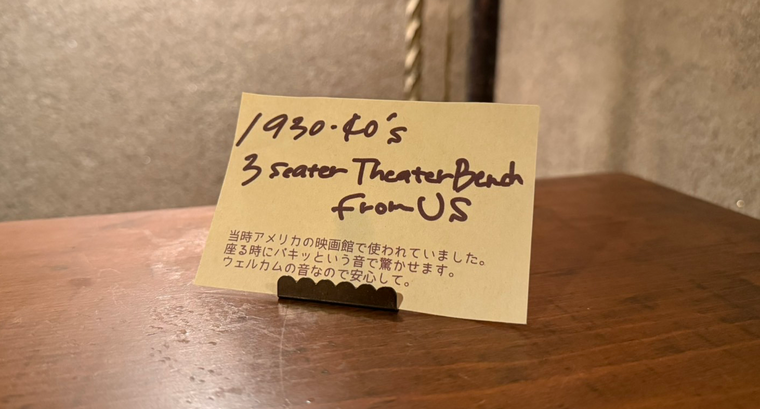 1930・40's
3 seater Theater Bench
from US
当時アメリカの映画館で使われていました。
座る時にバキッという音で驚かせます。
ウェルカムの音なので安心して。